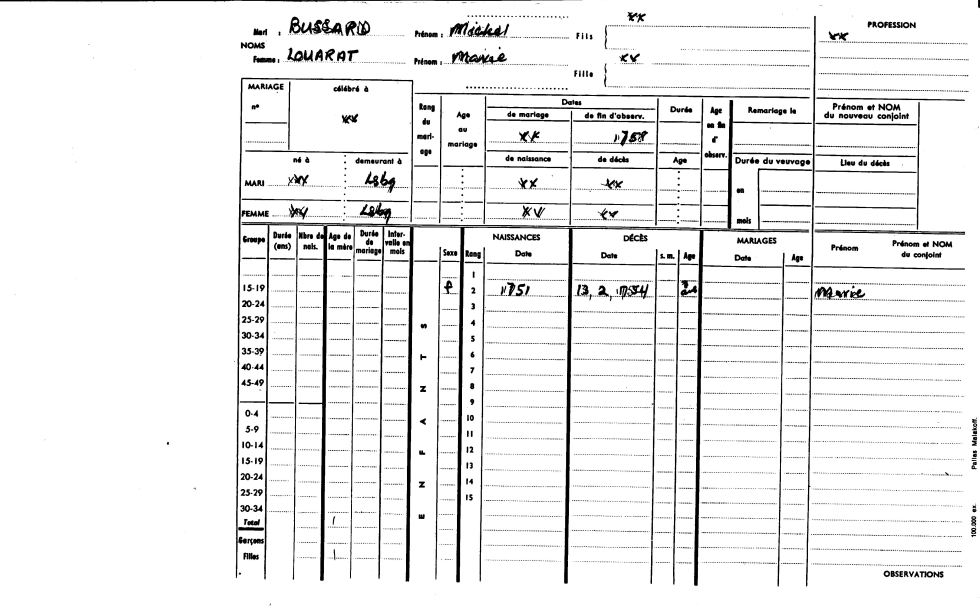 Mari : BUSSARD Prénom : Michel Fils xx
PROFESSION
xx
NOMS
Femme : LOUARAT Prénom : Marie Fille xx
MARIAGE célébré à
n° xx
Rang du mariage Age au mariage Dates Durée Age en fin d'observ. Remariage le Prénom et NOM du nouveau conjoint
de mariage de fin d'observ.
xx 1758
né à demeurant à de naissance de décès Age Durée du veuvage Lieu du décès
MARI xxx Lsbg xx xx en
FEMME xx Lsbg xx xx mois
Groupe Durée (ans) Nbre de nais. Age de la mère Durée de mariage Intervalle en mois Sexe Rang NAISSANCES DÉCÈS MARIAGES Prénom Prénom et NOM du conjoint
Date Date s. m. Age Date Age
1
15-19 f 2 1751 13, 2, 1754 Marie
20-24 3
25-29 4
30-34 5
35-39 6
40-44 7
45-49 8
9
0-4 10
5-9 11
10-14 12
15-19 13
20-24 14
25-29 15
30-34
Total 1
Garçons
Filles 1
ENFANTS
OBSERVATIONS
100.000 ex. Pallas Malakoff.